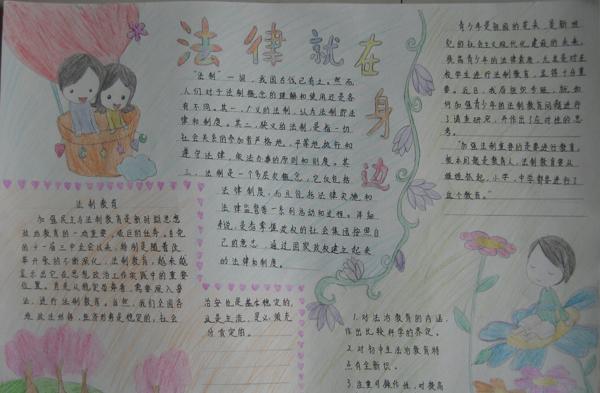 法律就在身边
"法制"一词，我国古代已有之。然而，
人们对于法制概念的理解和使用还是各
有不同。其一，广义的法制，认为法制即法
律和制度。其二，狭义的法制，是指一切
社会关系的参加者严格地、平等地执行和
遵守法律，依法办事的原则和制度。其
三，法制是一个多层次概念，它仅包括
法律制度，而且包括法律实施和
法律监督等一系列活动和过程。详细
来说，是志掌握政权的社会集团按照自
己的意志，通过国家政权建立起来
的法律和制度。
青少年是祖国的花朵，是新世
纪的社会主义现代化建设的未来，
提高青少年的法律意识，尤其是对在
校学生进行法制教育，显得十分重
要。近日，政府组织专班，就如
何加强青少年的法制教育问题进行
了调查研究，并作出了应对性的思
考。
"加强法制重要的是要进行教育，
根本问题是教育人，法制教育要从
娃娃抓起，小学，中学都要进行
这个教育。"
法制教育
加强民主与法制教育是新时期思想
政治教育的一项重要
的十一届三中全会以来，特别是随着改
革开放的不断深化，法制教育，越来越
显示出它在思想政治工作实践中的重要
位置。首先从稳定政局看，需要深入普
法，进行法制教育。当然，我们全国各
地政治形势，经济形势是稳定的，社会
治安也是基本稳定的，
这是主流，是必须充
分肯定的。
1.对法治教育的内涵
作出比较科学的界定。
2.对初中生法治教育特
点有全新识。
3.注重可操作性，对提高